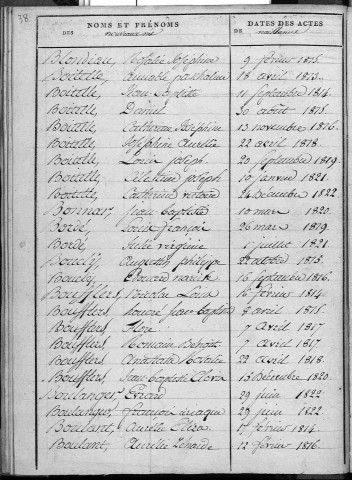 38.
NOMS ET PRÉNOMS
DATES DES ACTES
DES
DE naissance
Blondiau, Rosalie Joséphine 9 février 1815.
Boitelle, Aimable paschal 18 avril 1813.
Boitelle, Jean Baptiste 11 Septembre 1814.
Boitelle, Daniel 30 août 1815.
Boitelle, Catherine Joséphine 13 novembre 1816.
Boitelle, Joséphine Aurélie 22 avril 1818.
Boitelle, Louis joseph 20 Septembre 1819.
Boitelle, Célestine joseph 19 janvier 1821.
Boitelle, Catherine victoire 24 décembre 1822.
Bonnar, Jean baptiste 10 mars 1820.
Bordé, Louis François 26 mars 1819.
Bordé Julie virginie 1 juillet 1821.
Boucly, Augustin philippe 28 octobre 1813.
Boucly, Edouard 16 Septembre 1816.
Boufflers, Louis 16 février 1814.
Boufflers, Jean baptiste 8 avril 1815.
Boufflers, 7 avril 1817
Boufflers, Romain Benoit 7 avril 1817
Boufflers, Anastasie 22 avril 1818.
Boufflers, Jean baptiste Clovis 13 Décembre 1820.
Boulanger, Evrard 29 juin 1822.
Boulanger, françois 29 juin 1822.
Boulant, Aurélie Eliza 17 février 1814.
Boulant, Aurélie Zénaïde 12 février 1816.